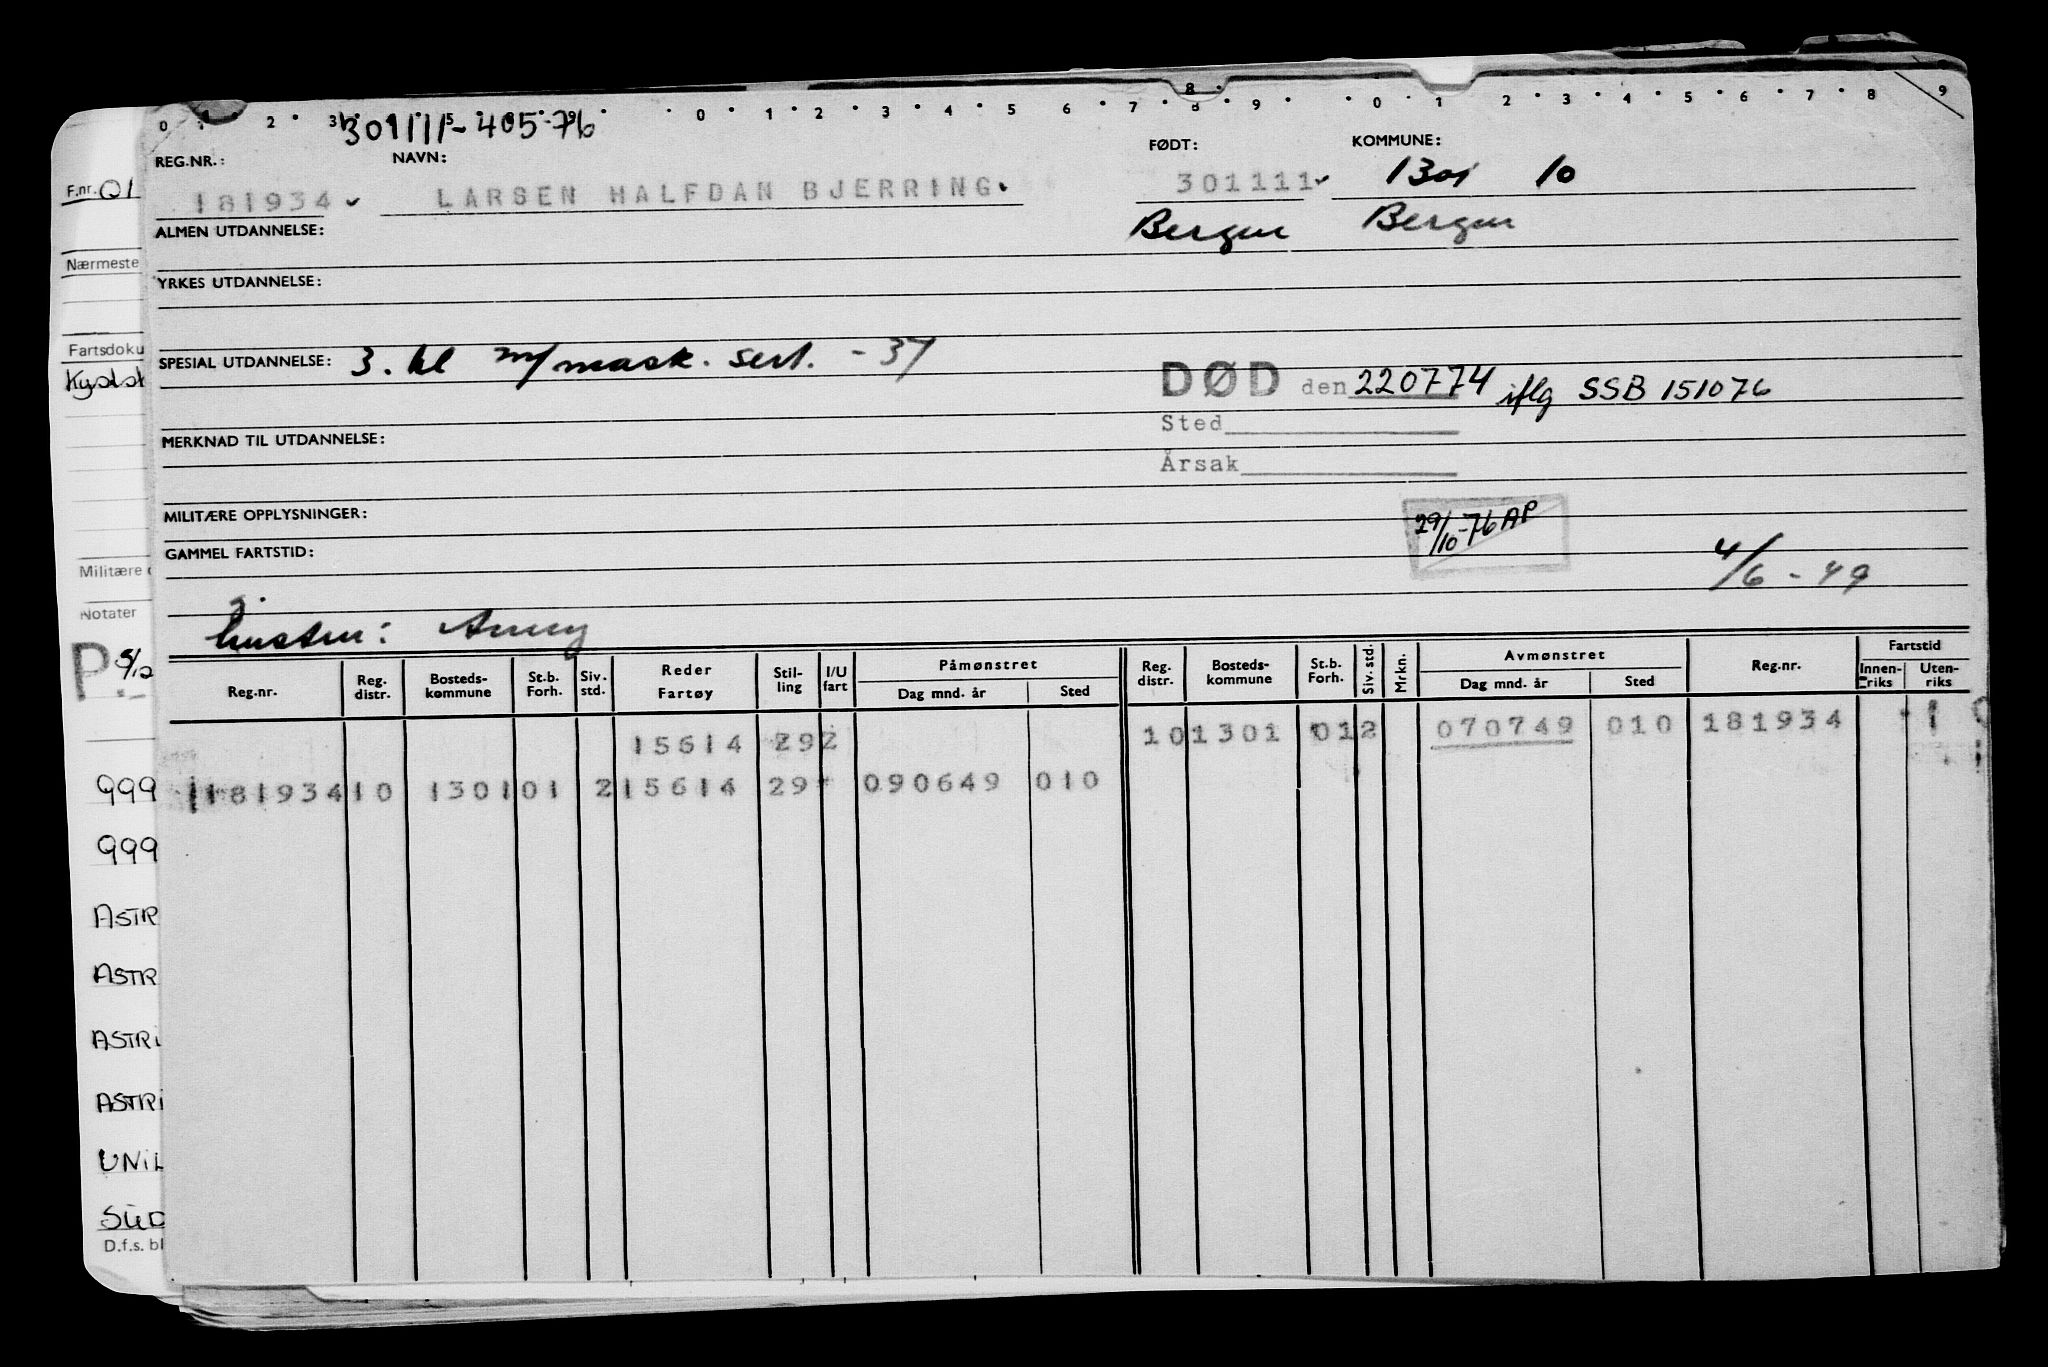 0 1 2 3 5 0 1 2 3 4 5 6 7 8 9 0 1 2 3 4 5 6 7 8 9
301111-405.76
REG.NR.: NAVN: FØDT: KOMMUNE:
F.nr. 01
181934 LARSEN HALFDAN BJERRING. 301111 1301 10
ALMEN UTDANNELSE: Bergen Bergen
Nærmeste
YRKES UTDANNELSE:
Fartsdoku
SPESIAL UTDANNELSE: 3. kl m/mask. sert. - 37
Kystsk
DØD den 220774 iflg SSB 151076
Sted
MERKNAD TIL UTDANNELSE:
Årsak
MILITÆRE OPPLYSNINGER:
29/10-76 AP
GAMMEL FARTSTID:
4/6 - 49
Militære o
Notater
hustru: Anny
P. 5/12
Reg.nr. Reg. distr. Bosteds-kommune St.b. Forh. Siv. std. Reder Fartøy Stil-ling I/U fart Påmønstret Dag mnd. år Sted Reg. distr. Bosteds-kommune St.b. Forh. Siv. std. Mrkn. Avmønstret Dag mnd. år Sted Reg.nr. Fartstid Innen-riks Uten-riks
15614 292 10 1301 01 2 070749 010 181934 1
999 181934 10 1301 01 2 15614 29 090649 010
999
ASTR
ASTR
ASTRi
ASTRi
UNiL
SUD
D.f.s. bl